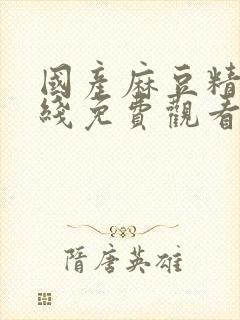 國產麻豆精
綫免費觀看
隋唐英雄